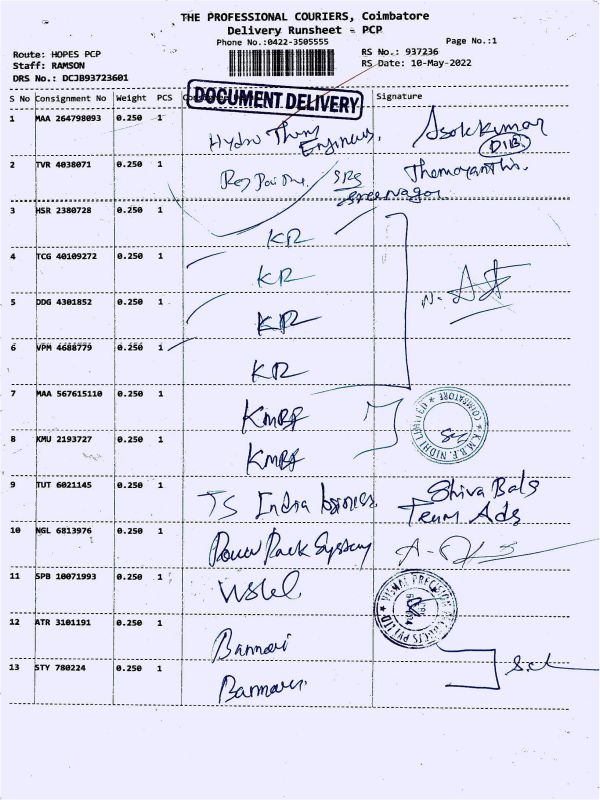 THE PROFESSIONAL COURIERS, Coimbatore
Delivery Runsheet - PCP
Phone No.:0422-3505555
Page No.:1
Route: HOPES PCP
RS No.: 937236
Staff: RAMSON
RS Date: 10-May-2022
DRS No.: DCJB93723601
DOCUMENT DELIVERY
S No Consignment No Weight PCS Signature
1 MAA 264798093 0.250 1 Hydro Engineers, Asokkumar
2 TVR 4038071 0.250 1
Sreenagar
3 HSR 2380728 0.250 1 KR
4 TCG 40109272 0.250 1 KR
5 DDG 4301852 0.250 1 KR
6 VPM 4688779 0.250 1 KR
7 MAA 567615110 0.250 1 KMBF
8 KMU 2193727 0.250 1 KMBF
K.M.B.F. NIDHI LIMITED * COIMBATORE *
9 TUT 6021145 0.250 1 TS India Shiva Bals
Team Ads
10 NGL 6813976 0.250 1 Power Pack Systems
11 SPB 10071993 0.250 1
VISHAL PRECISION PVT LTD
12 ATR 3101191 0.250 1 Bannari
13 STY 780224 0.250 1 Bannari